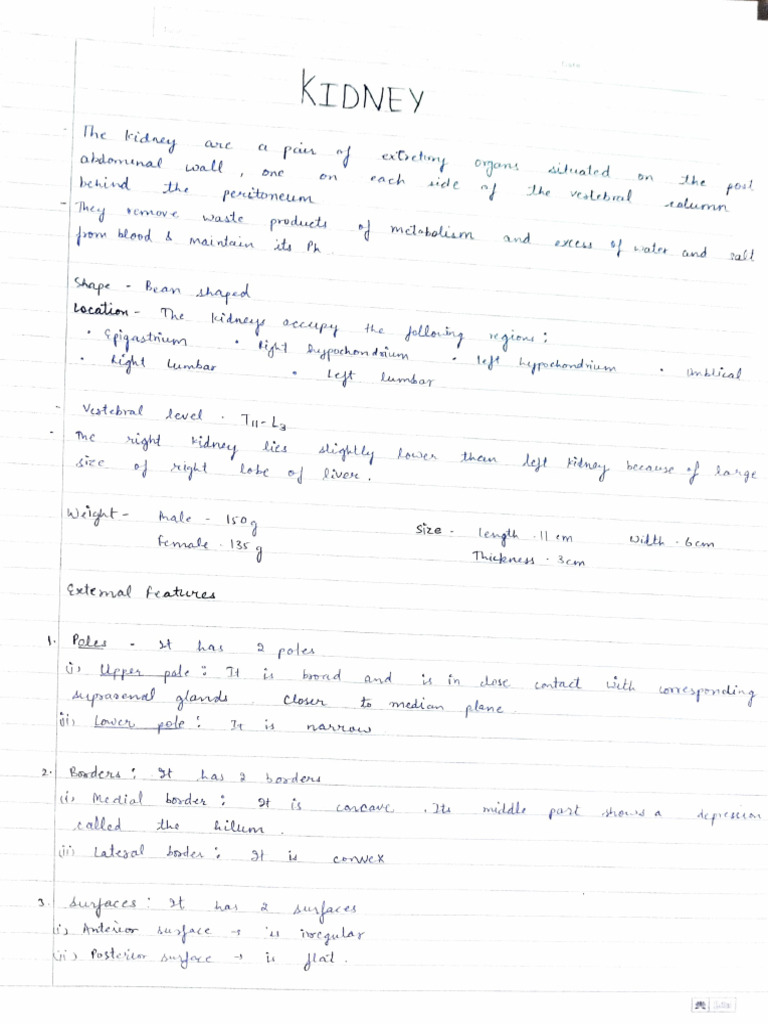 KIDNEY
- The kidney are a pair of extretory organs situated on the post
abdominal wall, one on each side of the vertebral column
behind the peritoneum
- They remove waste products of metabolism and excess of water and salt
from blood & maintain its Ph.
Shape - Bean shaped
Location - The kidneys occupy the following regions:
• Epigastrium • Right hypochondrium • left hypochondrium • umblical
• Right lumbar • Left lumbar
- Vertebral level - T11-L3
- The right kidney lies slightly lower than left kidney because of large
size of right lobe of liver.
Weight - Male - 150g Size - length - 11 cm Width - 6cm
Female - 135 g Thickness - 3cm
External features
1. Poles - It has 2 poles
(i) Upper pole: It is broad and is in close contact with corresponding
suprarenal glands. Closer to median plane.
(ii) Lower pole: It is narrow
2. Borders: It has 2 borders
(i) Medial border: It is concave. Its middle part shows a depression
called the hilum.
(ii) Lateral border: It is convex
3. Surfaces: It has 2 surfaces
(i) Anterior surface → is irregular
(ii) Posterior surface → is flat.